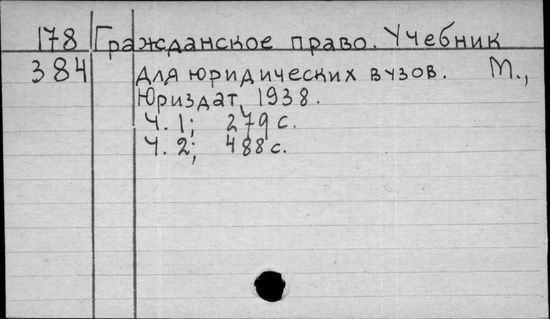 178 Гражданское право. Учебник
384 для юридических вузов. М.,
Юриздат, 1938.
Ч. 1; 279 с.
Ч. 2; 488 с.